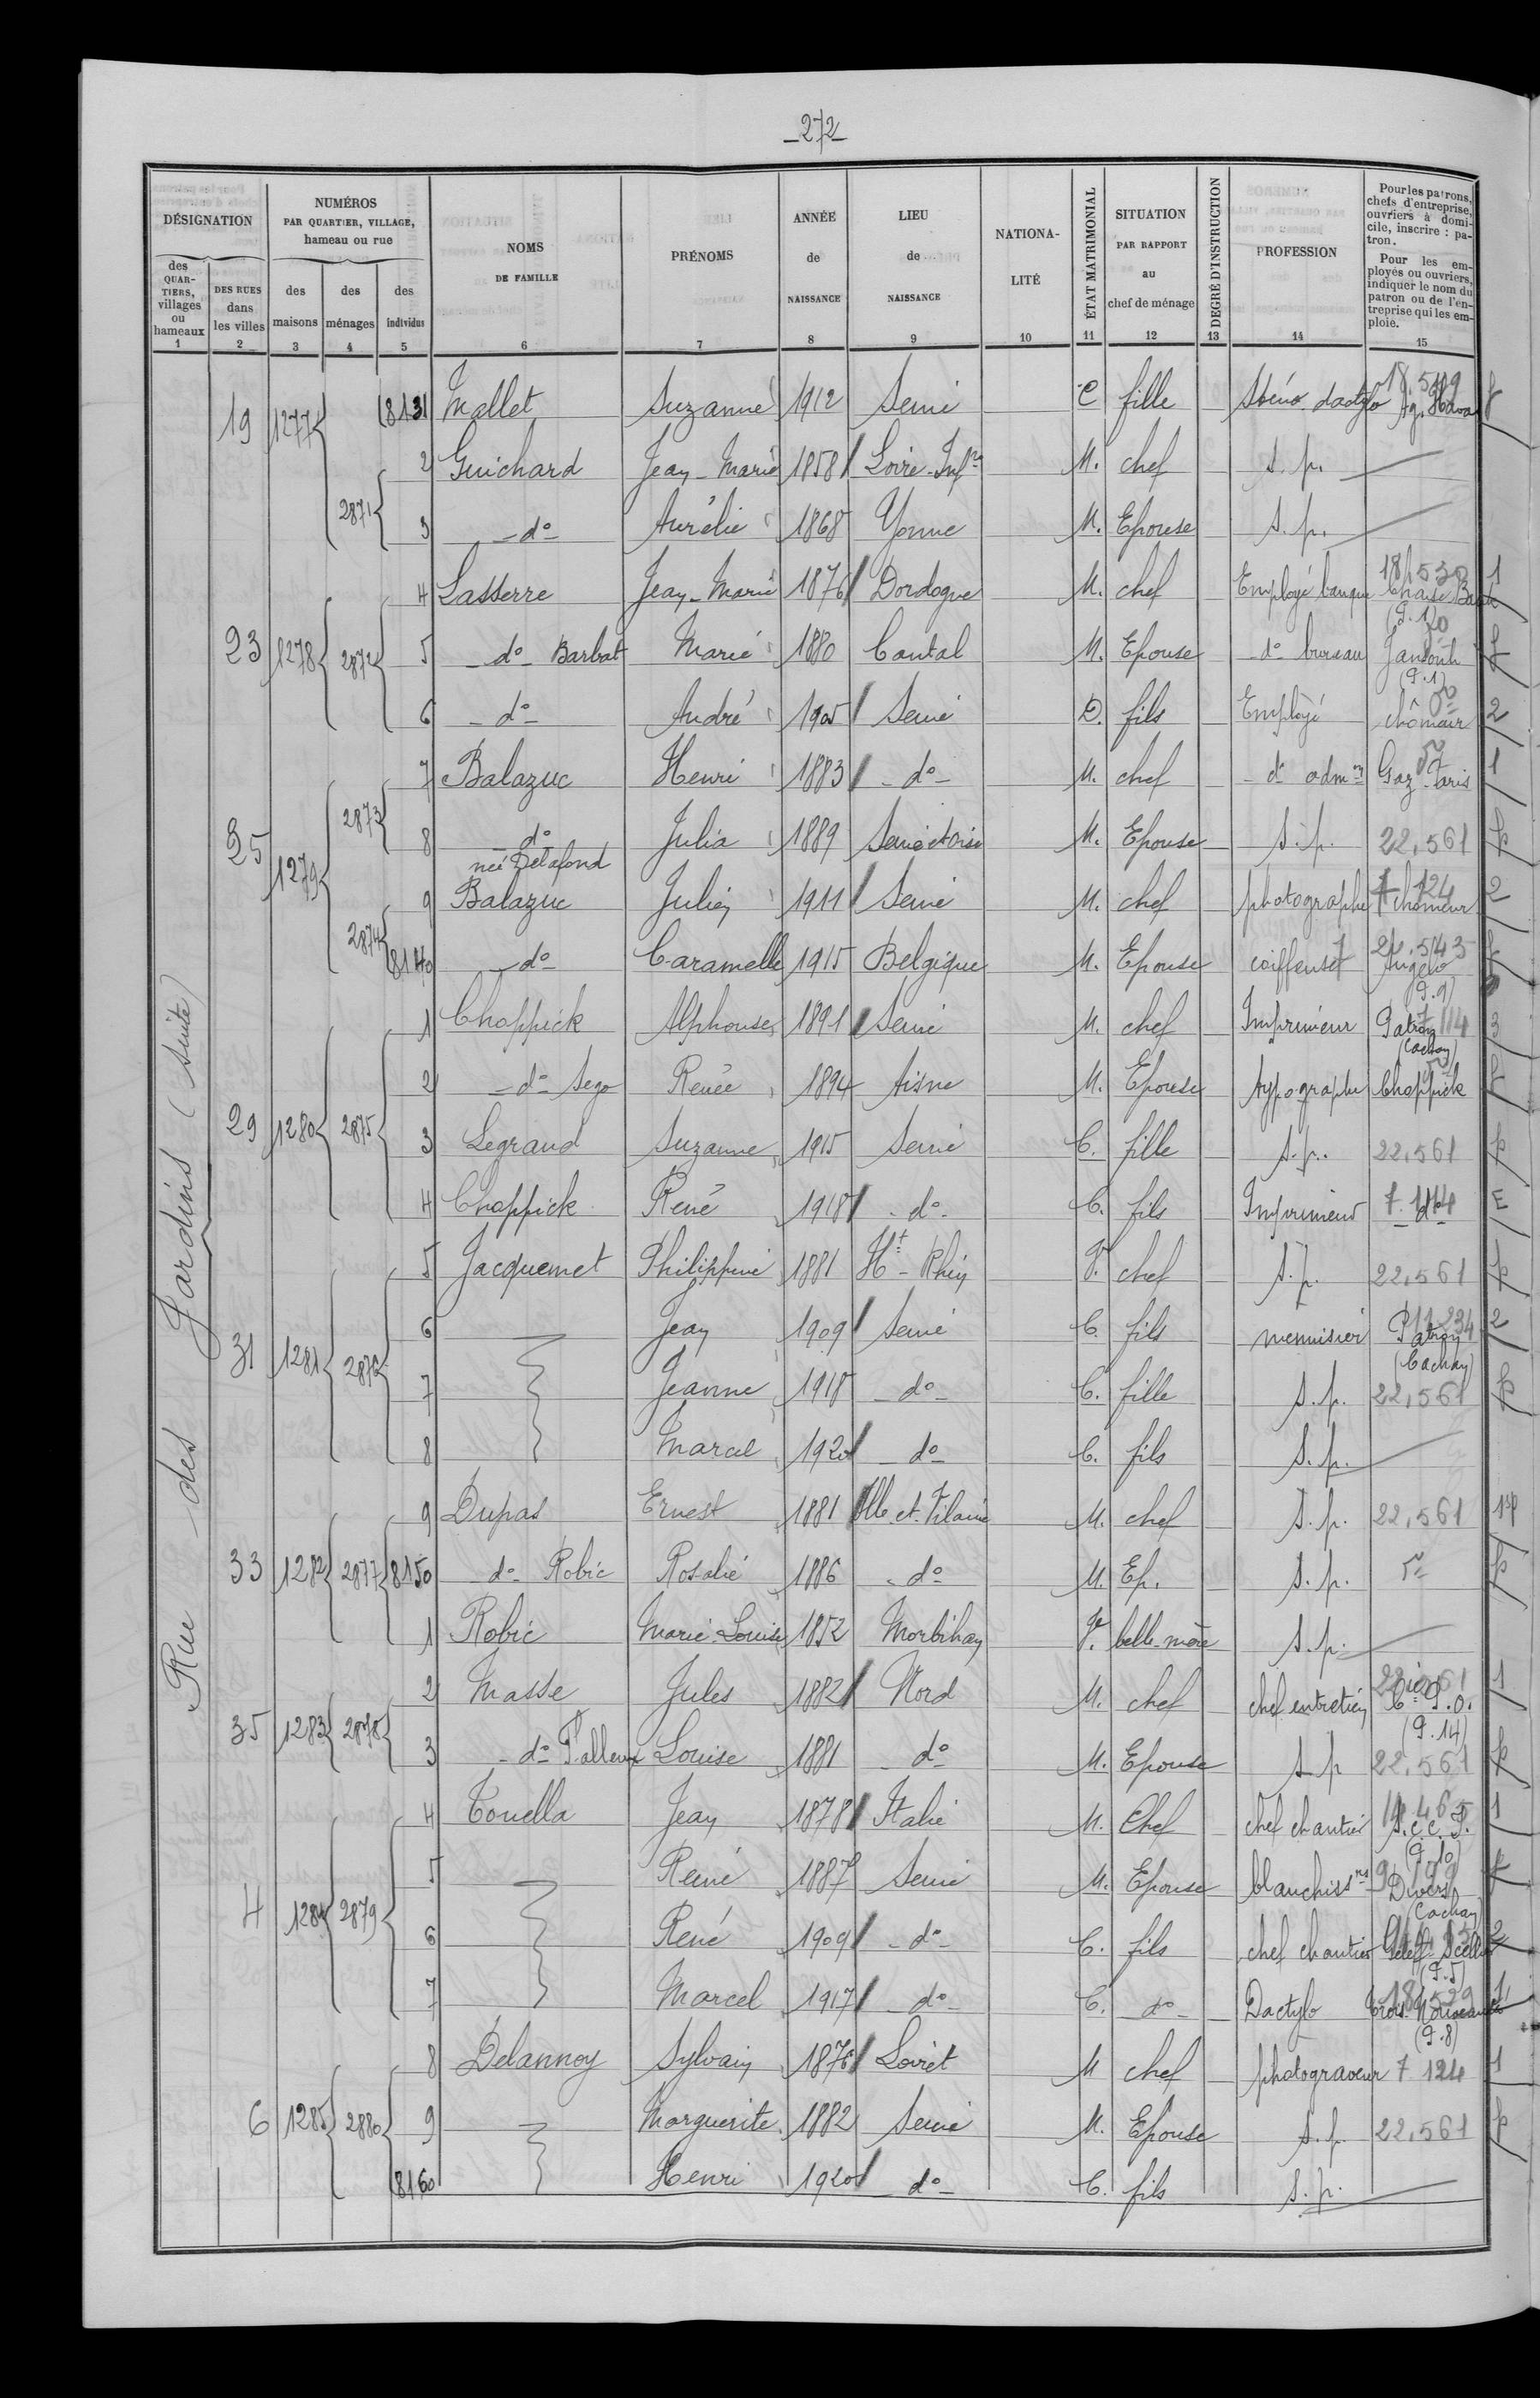 _272_
DÉSIGNATION
des QUARTIERS, villages ou hameaux
1
DES RUES dans les villes
2
NUMÉROS
PAR QUARTIER, VILLAGE,
hameau ou rue
des maisons
3
des ménages
4
des individus
5
NOMS
DE FAMILLE
6
PRÉNOMS
7
ANNÉE
de
NAISSANCE
8
LIEU
de
NAISSANCE
9
NATIONA-
LITÉ
10
ÉTAT MATRIMONIAL
11
SITUATION
PAR RAPPORT
au
chef de ménage
12
DEGRÉ D'INSTRUCTION
13
PROFESSION
14
Pour les patrons,
chefs d'entreprise,
ouvriers à domi-
cile, inscrire : pa-
tron.
Pour les em-
ployés ou ouvriers,
indiquer le nom du
patron ou de l'en-
treprise qui les em-
ploie.
15
Rue des Jardins (suite)
19 1277 8131 Mallet Suzanne 1912 Seine C fille Sténo dactylo Ag. Havas
2 Guichard Jean-Marie 1858 Loire-Infre M. chef s.p.
2871 3 _do_ Aurélie 1868 Yonne M. Epouse s.p.
4 Lasserre Jean-Marie 1876 Dordogne M. chef Employé banque 18,530 Chase Bank 1
23 1278 2872 5 _do_ Barbat Marie 1880 Cantal M. Epouse _do_ bureau
6 _do_ André 1905 Seine D. fils Employé chômeur 2
7 Balazuc Henri 1883 _do_ M. chef _do_ admon Gaz Paris 1
25 1279 2873 8 _do_ née Delafond Julia 1889 Seine et Oise M. Epouse s.p. 22,561
9 Balazuc Julien 1911 Seine M. chef photographe 7 124 chômeur 2
2874 8140 _do_ Caramelle 1915 Belgique M. Epouse coiffeuse 21,543 Angelo (P.9)
1 Choppick Alphonse 1891 Seine M. chef Imprimeur Patron 7 114 (Cachan) 3
2 _do_ Sego Renée 1894 Aisne M. Epouse typographe Choppick
29 1280 2875 3 Legrand Suzanne 1915 Seine C. fille s.p. 22,561
4 Choppick René 1918 _do_ C. fils Imprimeur 7.114 _do_ E
5 Jacquemet Philippine 1881 Ht-Rhin V. chef s.p. 22,561
6 Jean 1909 Seine C. fils menuisier Patron (Cachan) 2
31 1281 2876 7 Jeanne 1918 _do_ C. fille s.p. 22,561
8 Marcel 1920 _do_ C. fils s.p.
9 Dupas Ernest 1881 Ille et Vilaine M. chef s.p. 22,561
33 1282 2877 8150 do Robic Rosalie 1886 _do_ M. Ep. s.p.
1 Robic Marie-Louise 1852 Morbihan Ve belle-mère s.p.
2 Masse Jules 1882 Nord M. chef chef entretien Cie P.O. (P.14) 1
35 1283 2878 3 _do_ Louise 1881 do M. Epouse s.p 22,561
4 Tonella Jean 1878 Italie M. Chef chef chantier (P.10) 1
5 Reine 1887 Seine M. Epouse blanchissse Divers (Cachan)
4 1284 2879 6 René 1909 _do_ C. fils chef chantier (P.5) 2
7 Marcel 1917 _do_ C. _do_ Dactylo 18,529 (P.8)
8 Delannoy Sylvain 1876 Loiret M chef photograveur 7 124 1
6 1285 2880 9 Marguerite 1882 Seine M. Epouse s.p. 22,561
8160 Henri 1920 do_ C. fils s.p.